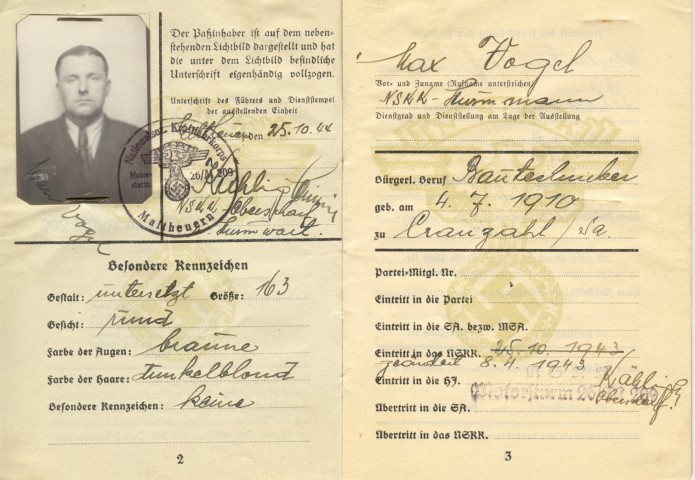 Der Paßinhaber ist auf dem neben-
stehenden Lichtbild dargestellt und hat
die unter dem Lichtbild befindliche
Unterschrift eigenhändig vollzogen.
Unterschrift des Führers und Dienststempel
der ausstellenden Einheit
Maltheuern, den 25.10.44
Motor-
sturm
26/M 209
Maltheuern
Max Vogel
Besondere Kennzeichen
Gestalt: untersetzt Größe: 163
Gesicht: rund
Farbe der Augen: braune
Farbe der Haare: dunkelblond
Besondere Kennzeichen: keine
2
Max Vogel
Vor- und Zuname (Rufname unterstrichen)
NSKK-Sturmmann
Dienstgrad und Dienststellung am Tage der Ausstellung
Bürgerl. Beruf Bautechniker
geb. am 4. 7. 1910
zu Cranzahl / Sa.
Partei-Mitgl. Nr.
Eintritt in die Partei
Eintritt in die SA. bezw. MSA.
Eintritt in das NSKK. 25.10.1943
geändert 8.4.1943
Eintritt in die HJ.
Motorsturm 26/M 209
Übertritt in die SA.
Übertritt in das NSKK.
3